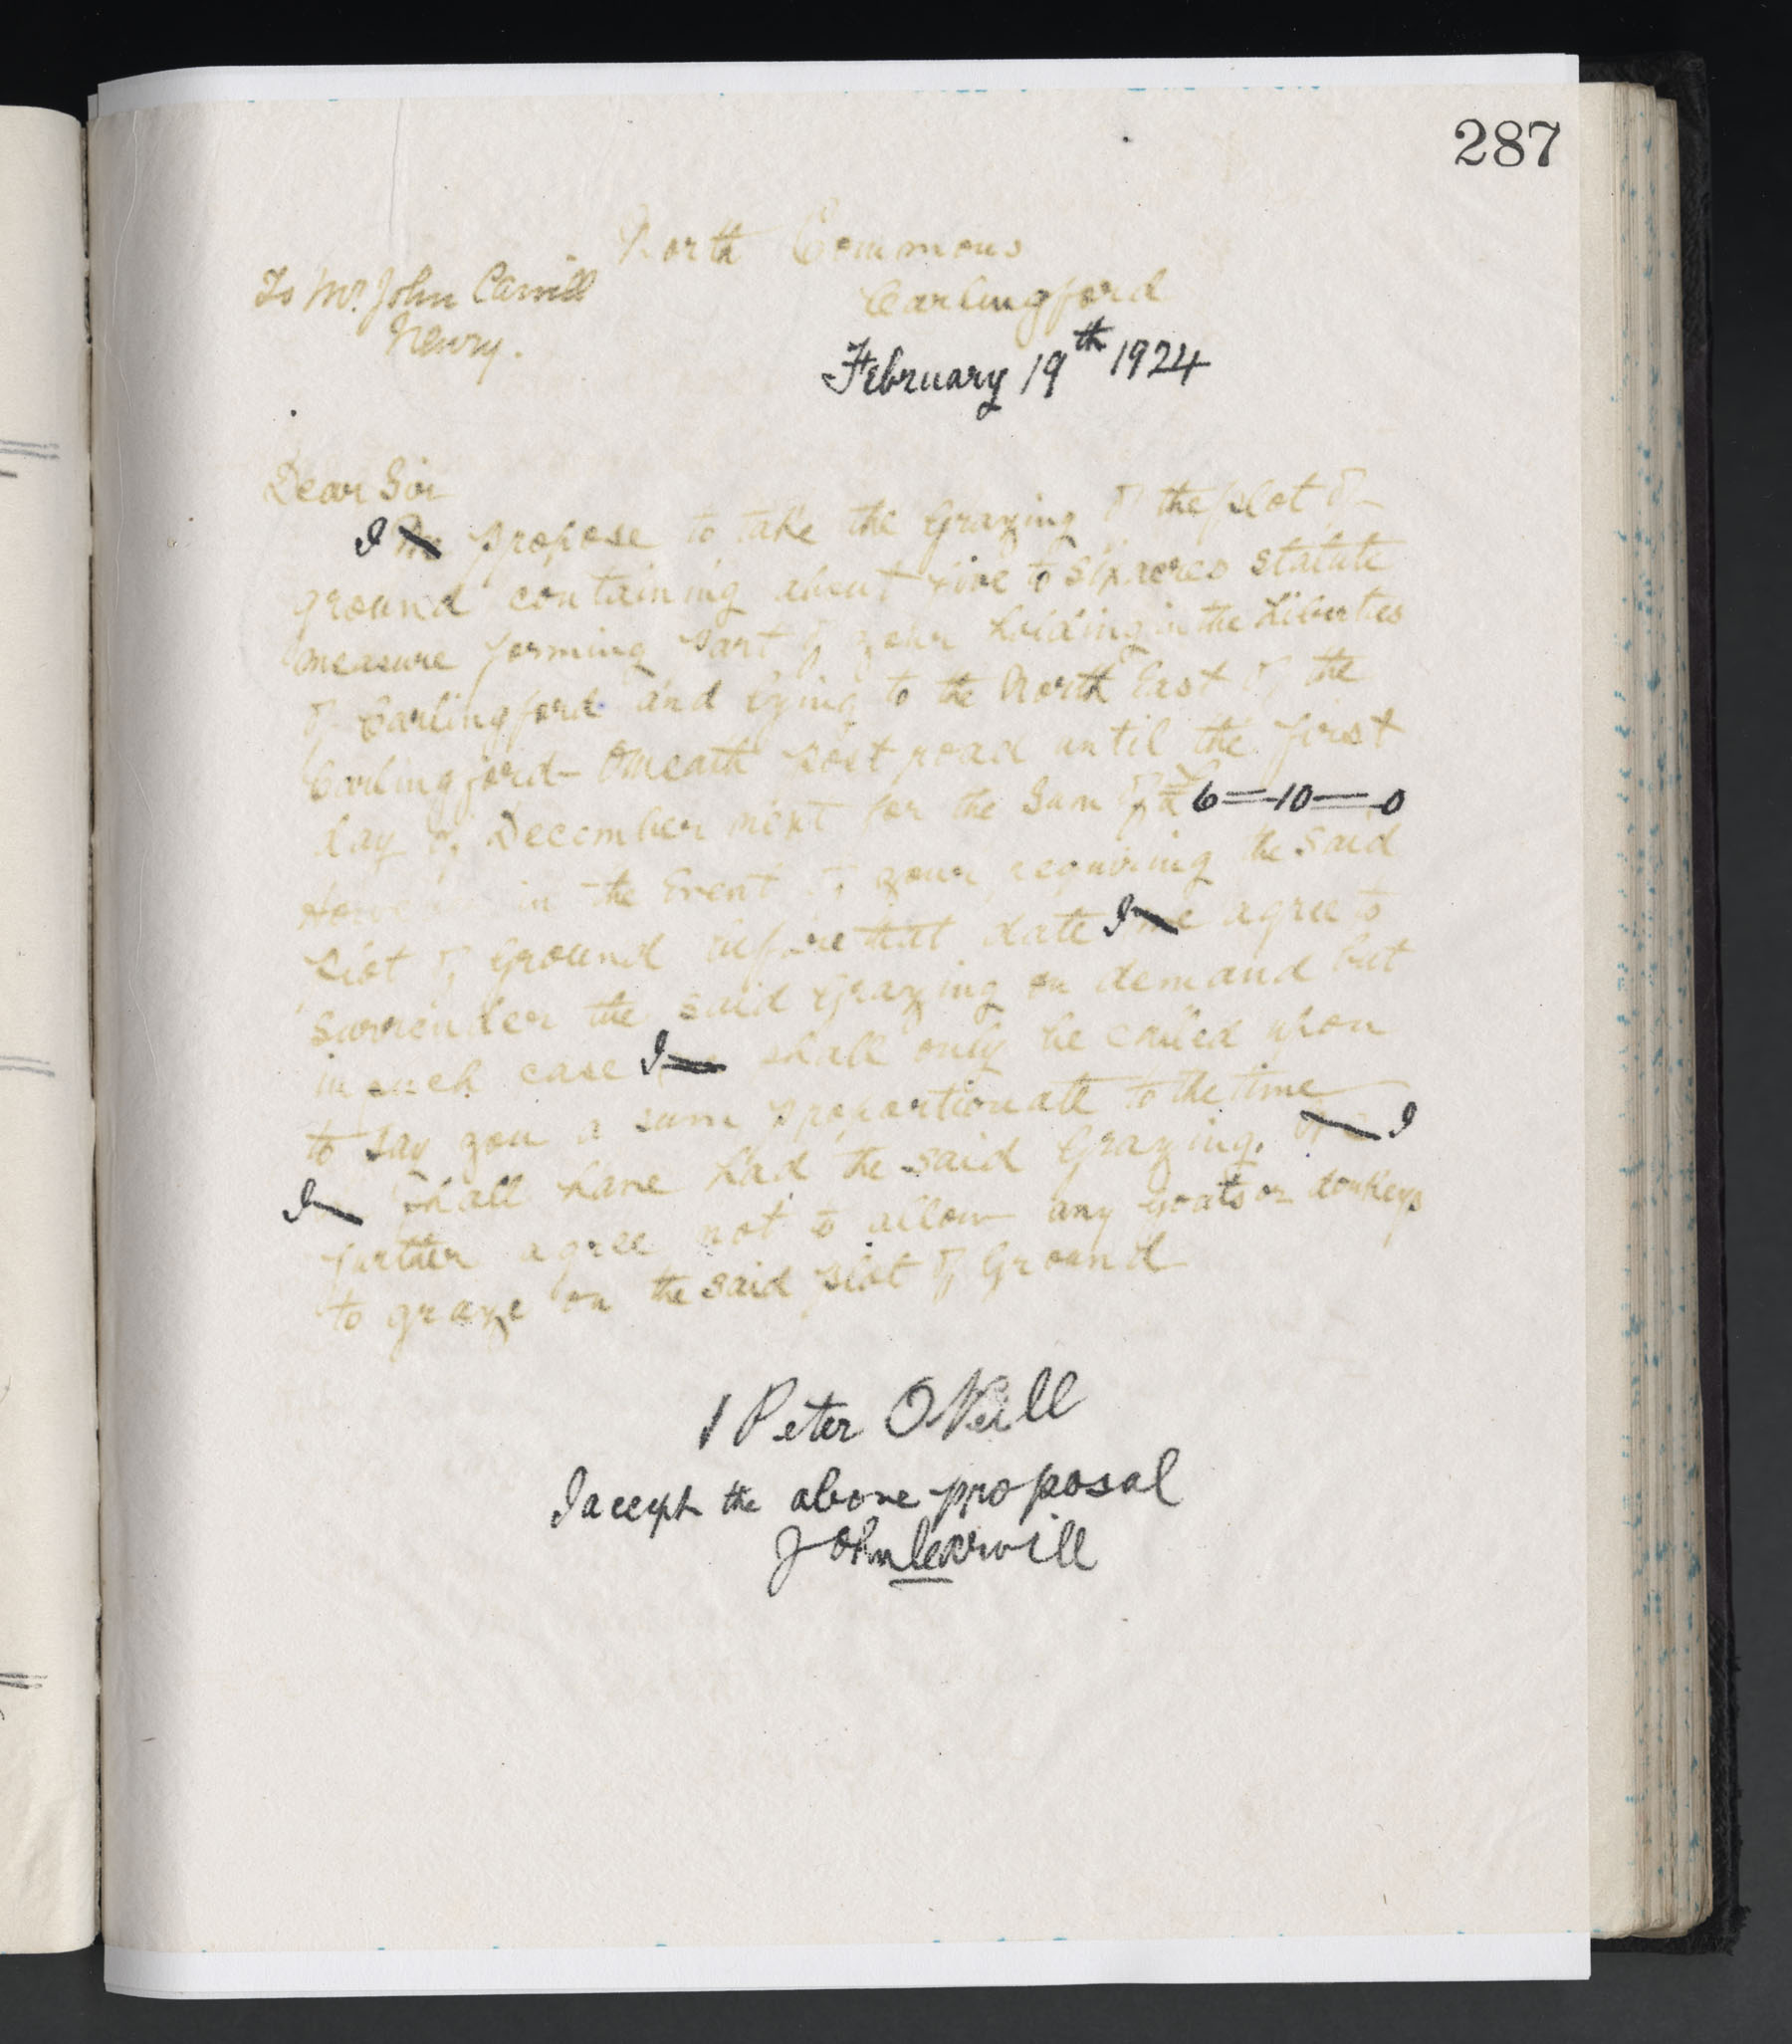 287
North Commons
To Mr. John Carvill
Carlingford
Newry.
February 19th 1924
Dear Sir
I We propose to take the Grazing of the plot of
ground containing about five to six acres statute
measure forming part of your holding in the Liberties
of Carlingford and lying to the North East of the
Carlingford- Omeath post road until the first
day of December next for the Sum of £6=10—0
However in the Event of your requiring the said
plot of Ground before that date I we agree to
surrender the said Grazing on demand but
in such case I shall only be called upon
to pay you a sum proportionate to the time
I shall have had the said Grazing. We I
further agree not to allow any goats or donkeys
to graze on the said plot of Ground
Peter ONeill
I accept the above proposal
John Carvill